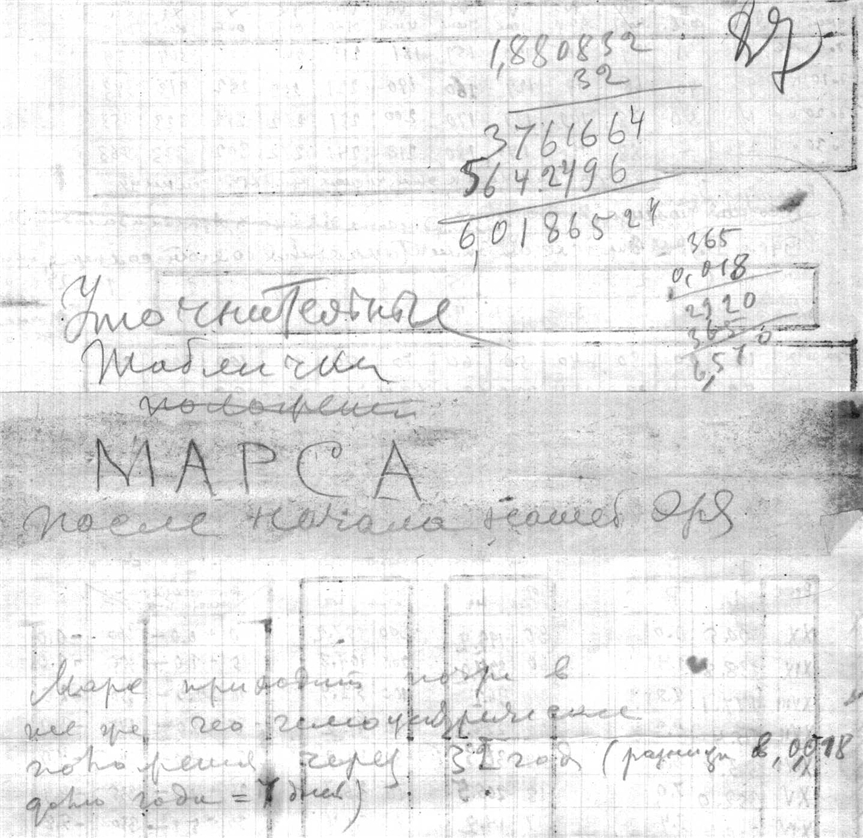 1,880832
32
3761664
5642496
6,0186524
365
0,018
2920
365
6,570
Уточнительные
таблички
положения
МАРСА
после начала нашей эры
Марс приходит почти в
те же гео гелиоцентрические
положения через 32 года (разница в 0,018
долю года = 7 дней)